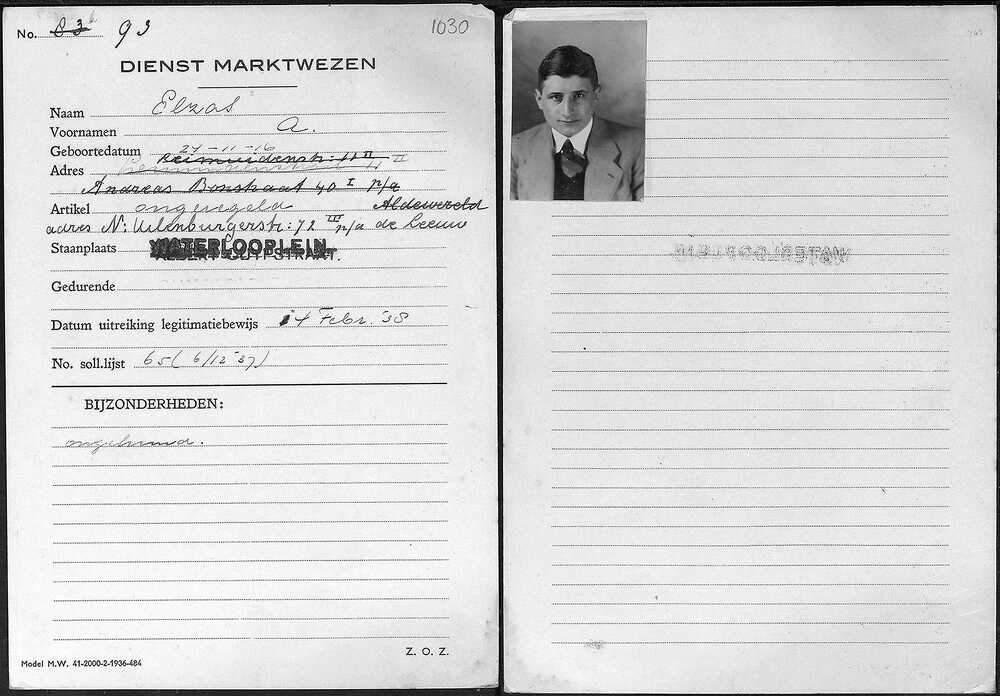 No. 83 93
1030
DIENST MARKTWEZEN
Naam Elzas
Voornamen A.
Geboortedatum 27-11-16
Adres II
Andreas Bonstraat 40 I p/a
Artikel ongeregeld Aldewereld
adres N: Uilenburgerstr: 72 III p/a de Leeuw
Staanplaats WATERLOOPLEIN.
ALBERT CUYPSTRAAT.
Gedurende
Datum uitreiking legitimatiebewijs 14 Febr. '38
No. soll.lijst 65 (6/12 '37)
BIJZONDERHEDEN:
ongehuwd.
Z. O. Z.
Model M.W. 41-2000-2-1936-484
WATERLOOPLEIN